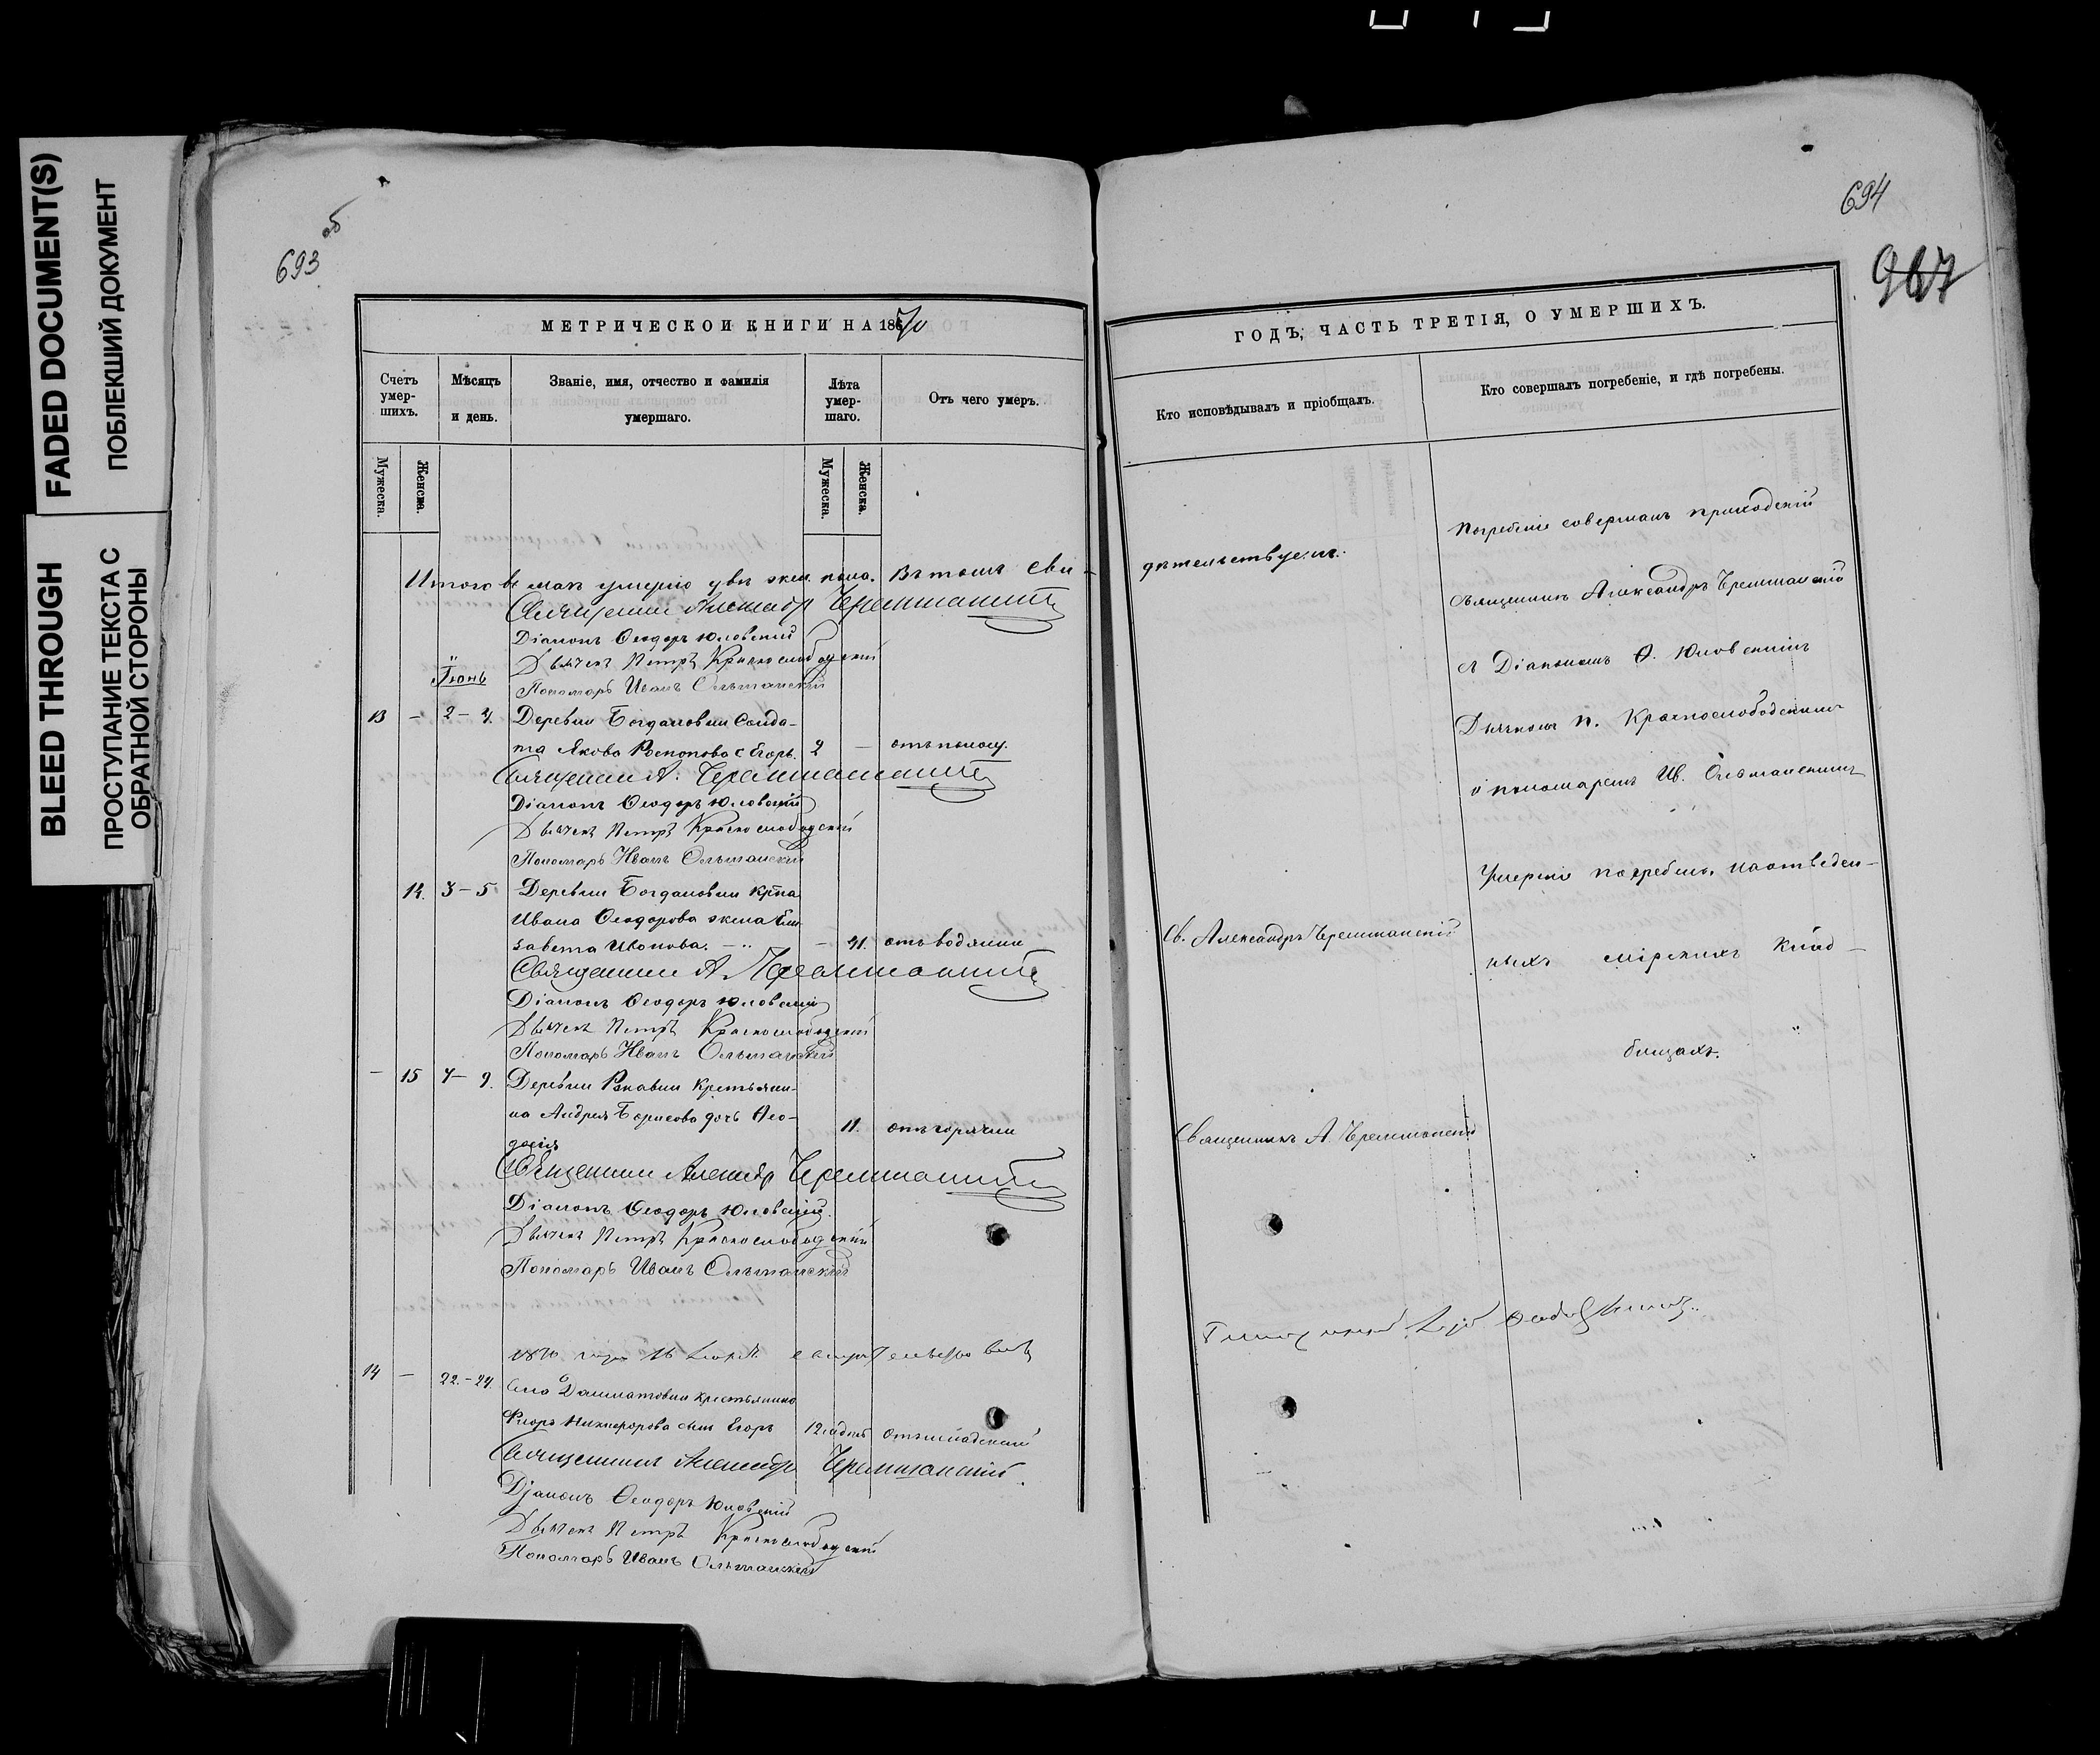 FADED DOCUMENT(S)
ПОБЛЕКШИЙ ДОКУМЕНТ
BLEED THROUGH
ПРОСТУПАНИЕ ТЕКСТА С
ОБРАТНОЙ СТОРОНЫ
693 об
МЕТРИЧЕСКОЙ КНИГИ НА 1870
Счетъ умер-шихъ.
Мѣсяцъ и день.
Званіе, имя, отчество и фамилія умершаго.
Лѣта умер-шаго.
Отъ чего умеръ.
Мужеска.
Женска.
Мужеска.
Женска.
Итого въ маѣ умерло двѣ жен. пола. Въ томъ сви-
Священникъ Александръ Черемшанскій
Діаконъ Ѳеодоръ Юловскій
Дьячекъ Петръ Краснослободскій
Іюнь
Пономарь Иванъ Ольшанскій
13 — 2 - 4. Деревни Богдановки Солда-
та Якова сЕгоръ. 2 — отъ поносу.
Священникъ А. Черемшанскій
Діаконъ Ѳеодоръ Юловскій
Дьячекъ Петръ Краснослободскій
Пономарь Иванъ Ольшанскій
14. 3 - 5 Деревни Богдановки кр-на
Ивана Ѳеодорова жена Ели-
завета Иванова. — 41. отъ водянки
Священникъ А. Черемшанскій
Діаконъ Ѳеодоръ Юловскій
Дьячекъ Петръ Краснослободскій
Пономарь Иванъ Ольшанскій
— 15 7 - 9. Деревни Крестьяни-
на Андрея Борисова дочь Ѳео-
досія 11. отъ горячки
Священникъ Александръ Черемшанскій
Діаконъ Ѳеодоръ Юловскій.
Дьячекъ Петръ Краснослободскій
Пономарь Иванъ Ольшанскій
1870 года 16
14 — 22.-24. Села крестьянина
Никифорова сынъ Егоръ 12
Священникъ Александръ Черемшанскій.
Діаконъ Ѳеодоръ Юловскій
Дьячекъ Петръ Краснослободскій
Пономарь Иванъ Ольшанскій
694
967
ГОДЪ, ЧАСТЬ ТРЕТІЯ, О УМЕРШИХЪ.
Кто исповѣдывалъ и пріобщалъ.
Кто совершалъ погребеніе, и гдѣ погребены.
дѣтельствуемъ.
Погребеніе совершалъ приходскій
священникъ Александръ Черемшанскій
съ Діакономъ Ѳ. Юловскимъ
Дьячкомъ П. Краснослободскимъ
и пономаремъ Ив. Ольшанскимъ
Умершіе погребены на отведен-
ныхъ мірскихъ клад-
бищахъ.
Св. Александръ Черемшанскій
Священникъ А. Черемшанскій